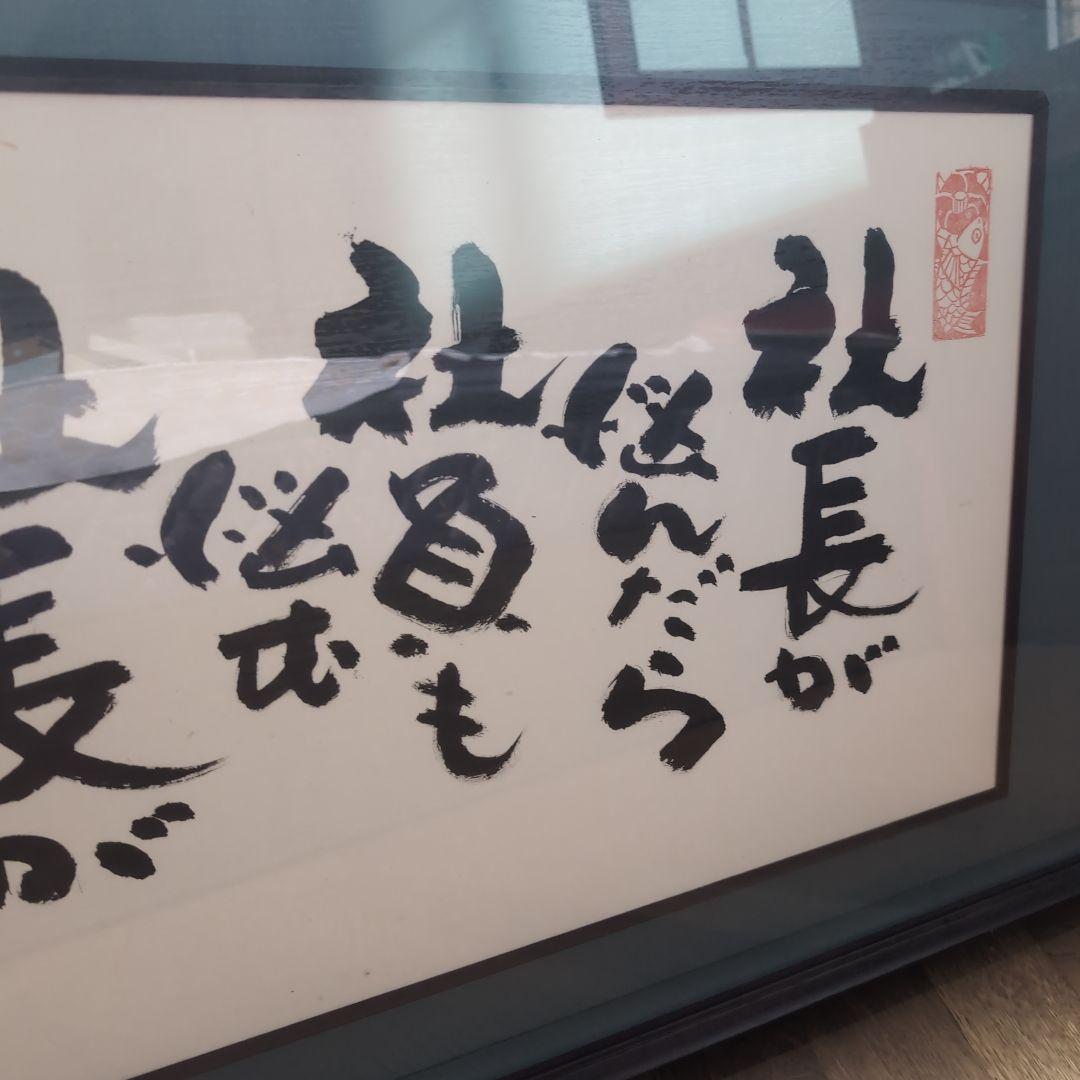 社長が
悩んだら
社員も
悩む
社長が